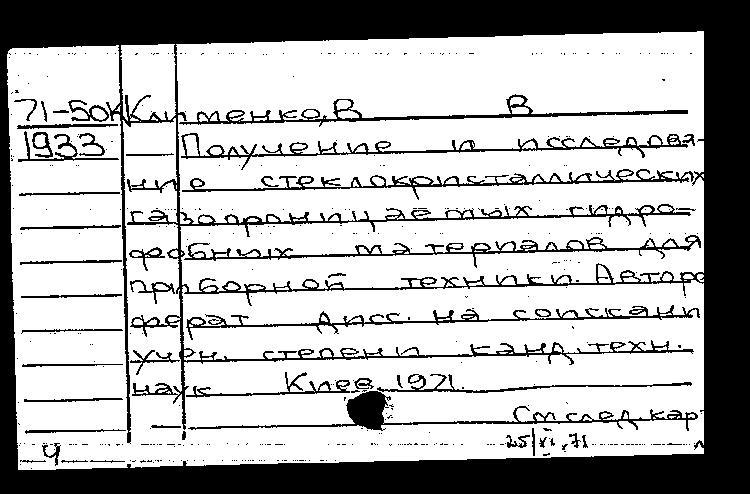 71-50к Клименко, В В
1933 Получение и исследова-
ние стеклокристаллических
газопроницаемых гидро-
фобных материалов для
приборной техники. Авторе
ферат дисс. на соискани
учен. степени канд. техн.
наук Киев. 1971.
См след. кар
25/VI.71
4